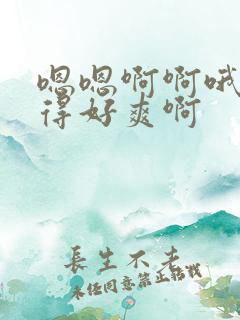 嗯嗯啊啊哦
得好爽啊
長生不老
未经同意禁止转载